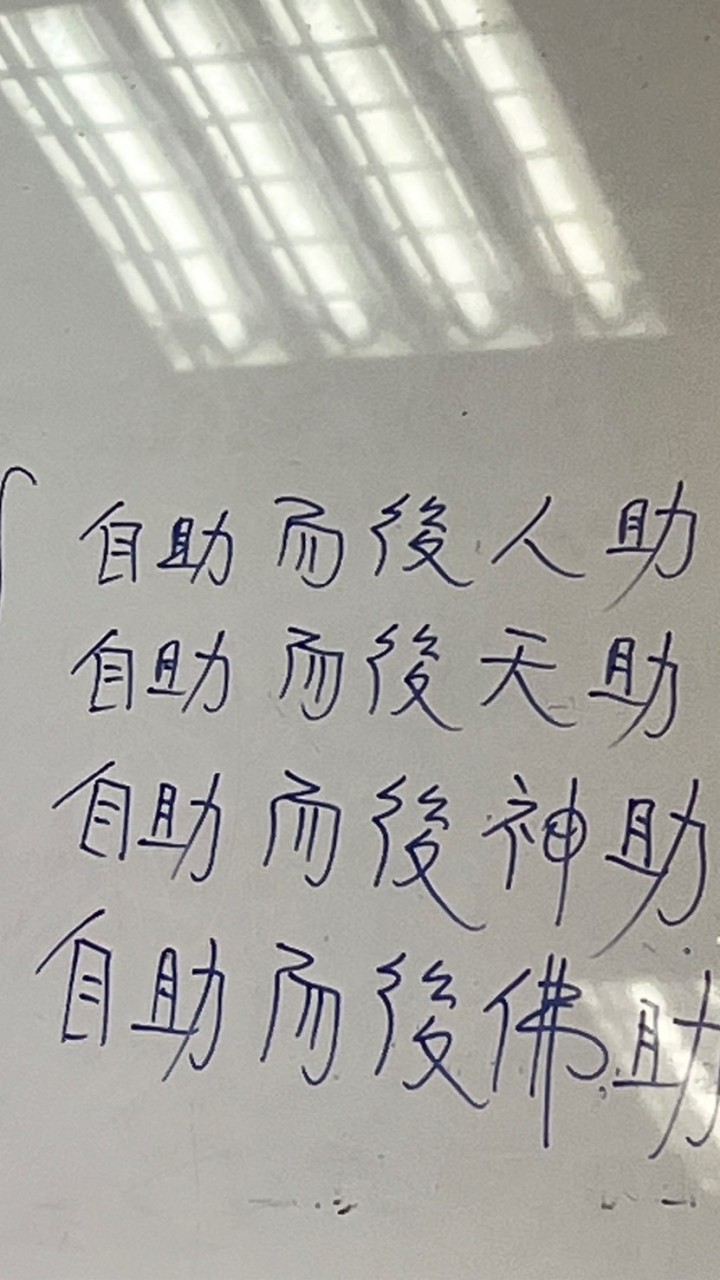 自助而後人助
自助而後天助
自助而後神助
自助而後佛助